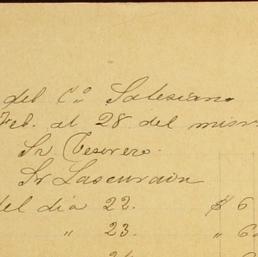 del Co Salesiano
Feb. al 28 del mism
Sr Tesorero.
Sr Lascurain
del dia 22. $ 6
" 23. " 6